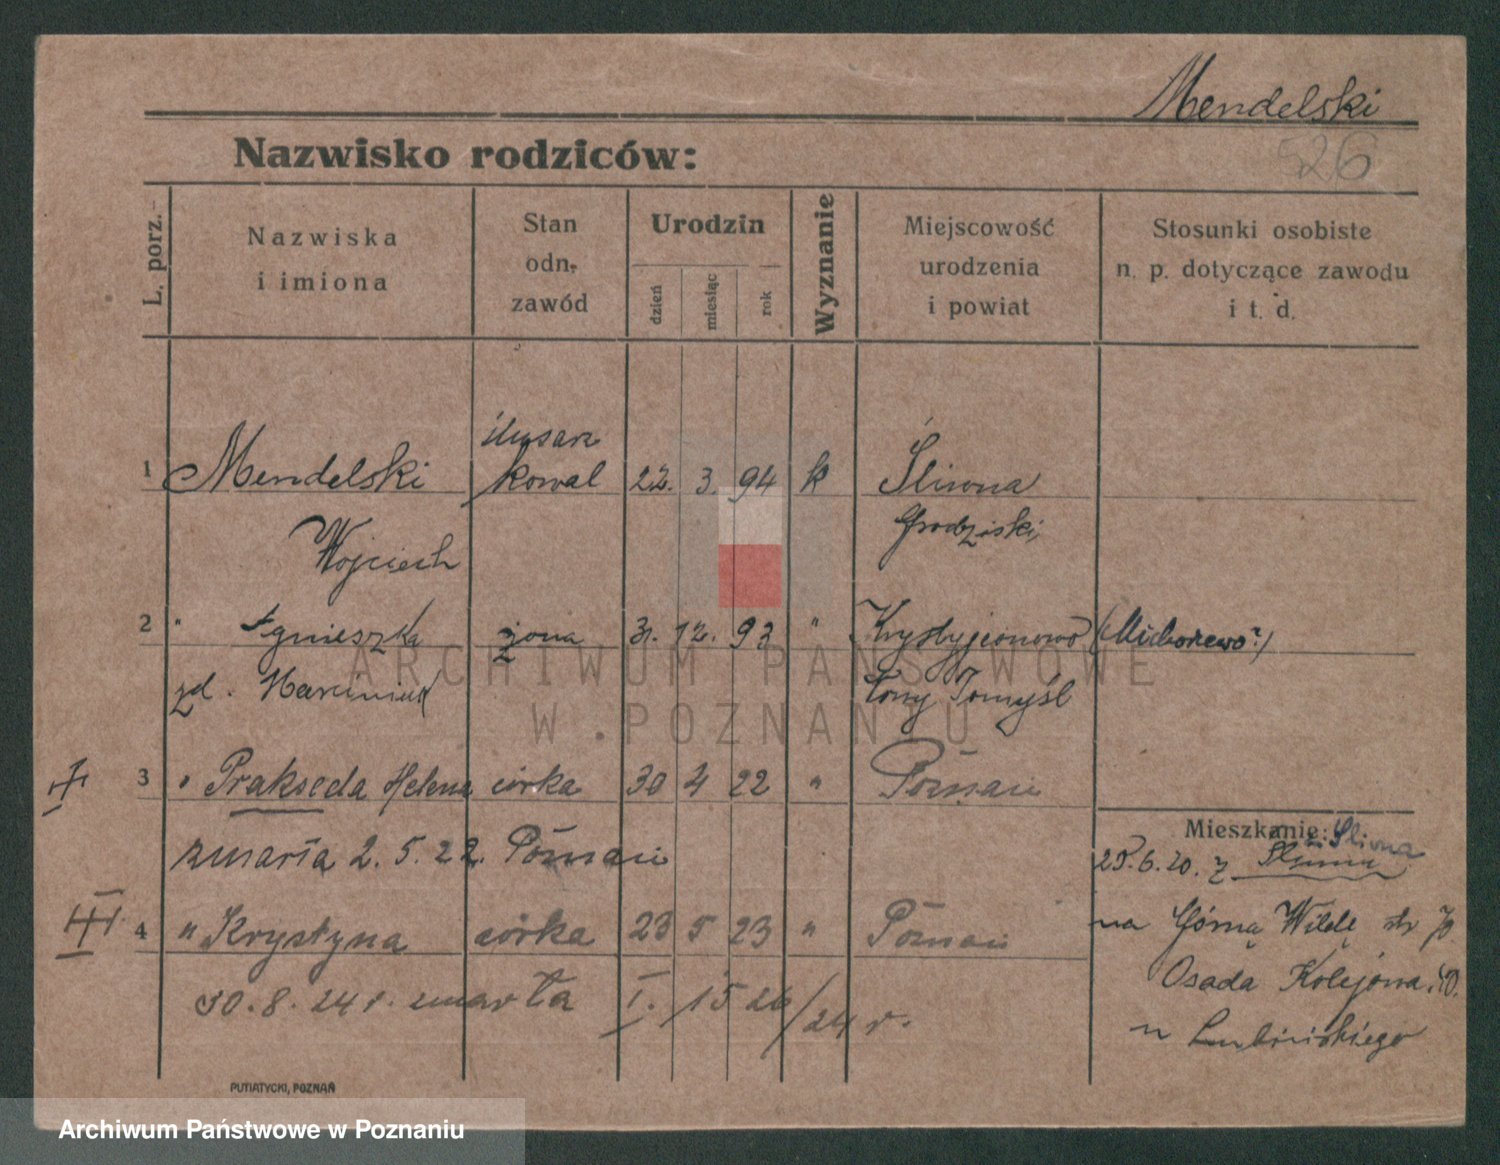 Mendelski
526
Nazwisko rodziców:
L. porz.
Nazwiska
i imiona
Stan
odn.
zawód
Urodzin
dzień
miesiąc
rok
Wyznanie
Miejscowość
urodzenia
i powiat
Stosunki osobiste
n. p. dotyczące zawodu
i t. d.
ślusarz
1 Mendelski kowal 22. 3. 94 k Śliwna
Wojciech Grodziski
2 " Agnieszka żona 31. 12. 93 " Krystyjonowo (Michorzewo?)
zd. Marciniak Tomyśl
3 " Prakseda Helena córka 30 4 22 " Poznań
zmarła 2. 5. 22. Poznań
Mieszkanie: Śliwna
25.6.20. z
4 " Krystyna córka 23 5 23 " Poznań
na Górną Wildę
30. 8. 24 r. zmarła I. 1526/24 r.
Osada Kolejowa
PUTIATYCKI, POZNAŃ
ARCHIWUM PAŃSTWOWE
W POZNANIU
Archiwum Państwowe w Poznaniu